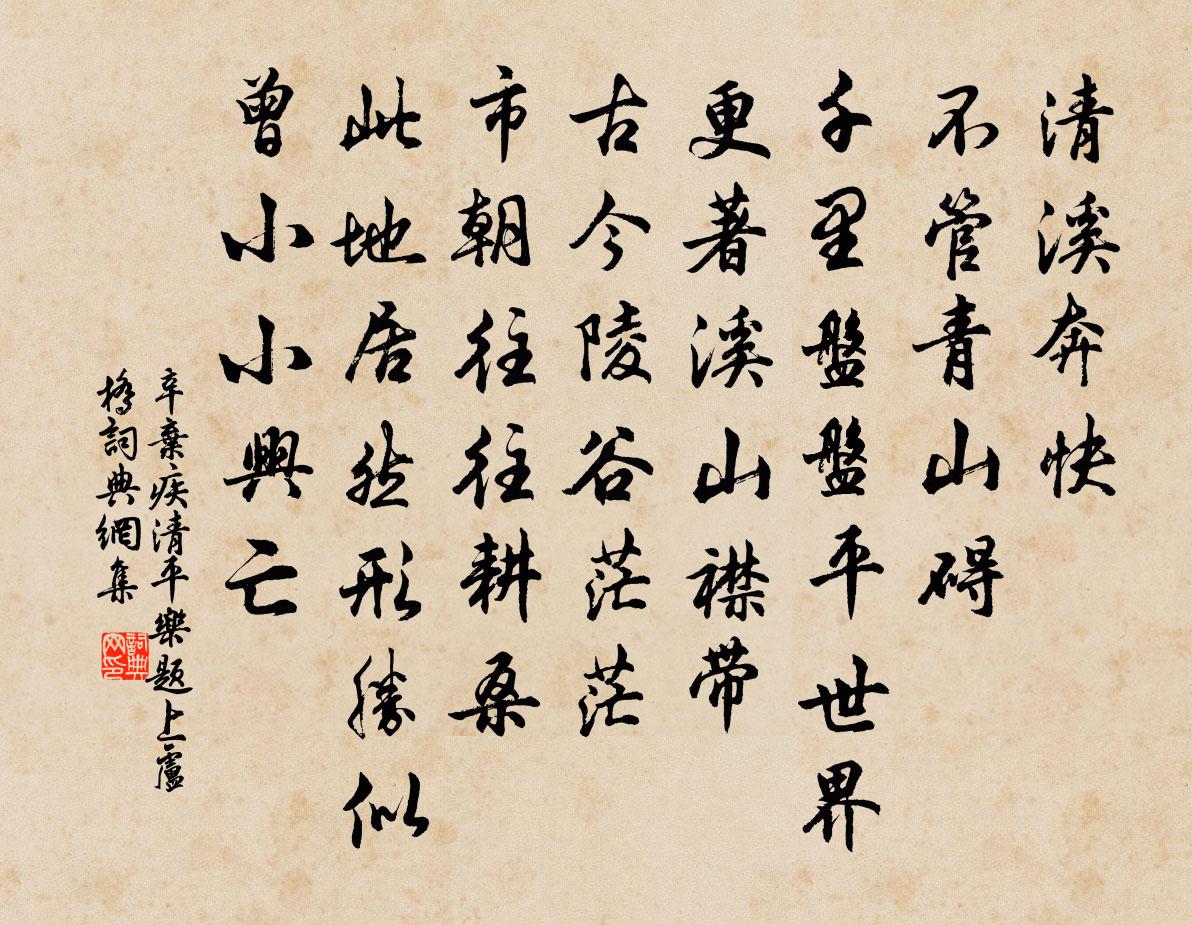 清溪奔快
不管青山碍
千里盤盤平世界
更著溪山襟帶
古今陵谷茫茫
市朝往往耕桑
此地居然形勝似
曾小小興亡
辛棄疾清平樂題上盧
橋詞典網集
詞典
网印